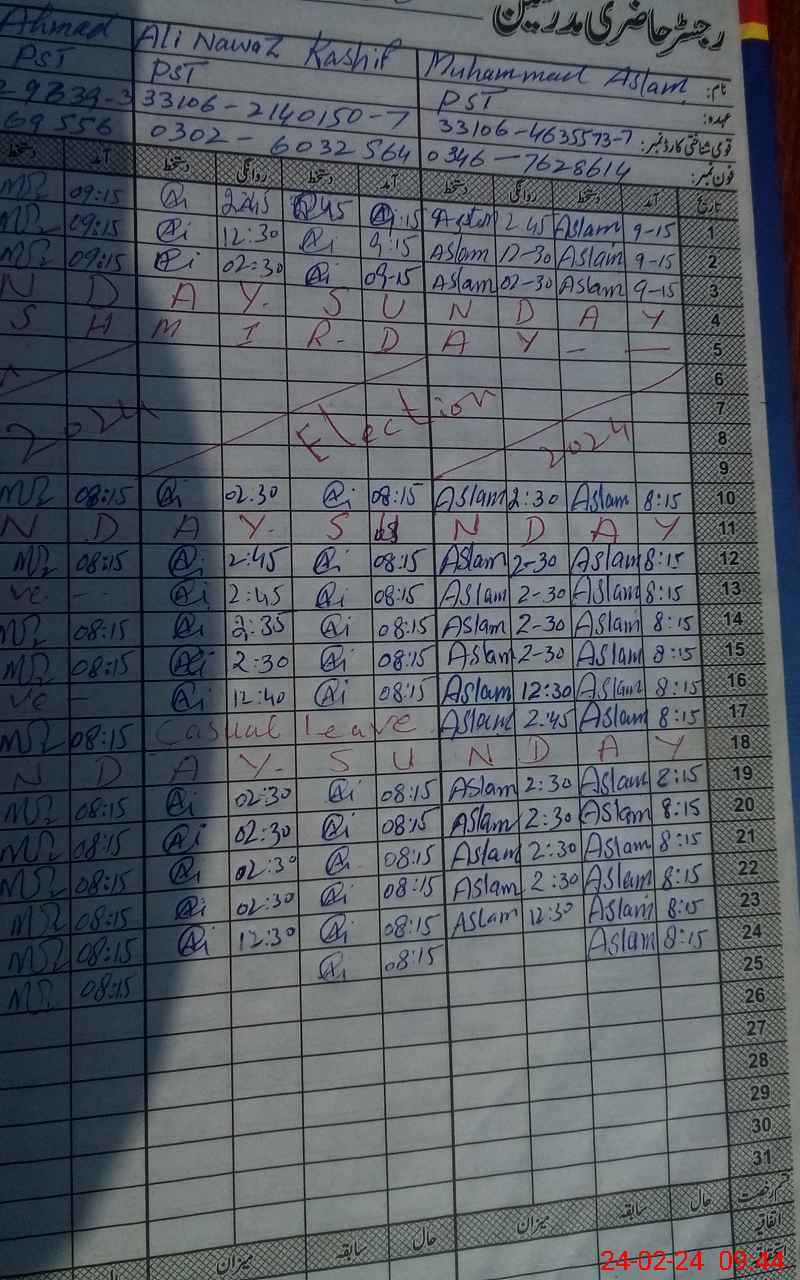 رجسٹر حاضری مدرسین
Ahmad Ali Nawaz Kashif Muhammad Aslam نام:
PST PST PST عہدہ:
29839-3 33106-2140150-7 33106-4635573-7 قومی شناختی کارڈ نمبر:
69556 0302-6032564 0346-7628614 فون نمبر:
دستخط آمد دستخط روانگی دستخط آمد دستخط روانگی دستخط آمد تاریخ
09:15 2:45 9:15 Aslam 2.45 Aslam 9-15 1
09:15 12:30 9:15 Aslam 12-30 Aslam 9-15 2
09:15 02:30 09-15 Aslam 02-30 Aslam 9-15 3
N D A Y. S U N D A Y 4
S H M I R- D A Y — — 5
6
7
2024 Election 2024 8
9
08:15 02.30 08:15 Aslam 2:30 Aslam 8:15 10
N D A Y. S U N D A Y 11
08:15 2:45 08:15 Aslam 2-30 Aslam 8:15 12
ve - - 2:45 08:15 Aslam 2-30 Aslam 8:15 13
08:15 2:35 08:15 Aslam 2-30 Aslam 8:15 14
08:15 2:30 08:15 Aslam 2-30 Aslam 8:15 15
ve - 12:40 08:15 Aslam 12:30 Aslam 8:15 16
08:15 Casual leave Aslam 2:45 Aslam 8:15 17
N D A Y. S U N D A Y 18
08:15 02:30 08:15 Aslam 2:30 Aslam 8:15 19
08:15 02:30 08:15 Aslam 2:30 Aslam 8:15 20
08:15 02:30 08:15 Aslam 2:30 Aslam 8:15 21
08:15 02:30 08:15 Aslam 2:30 Aslam 8:15 22
08:15 12:30 08:15 Aslam 12:30 Aslam 8:15 23
08:15 08:15 Aslam 8:15 24
25
26
27
28
29
30
31
میزان سابقہ حال میزان سابقہ حال قسم رخصت
اتفاقیہ
24-02-24 09:44